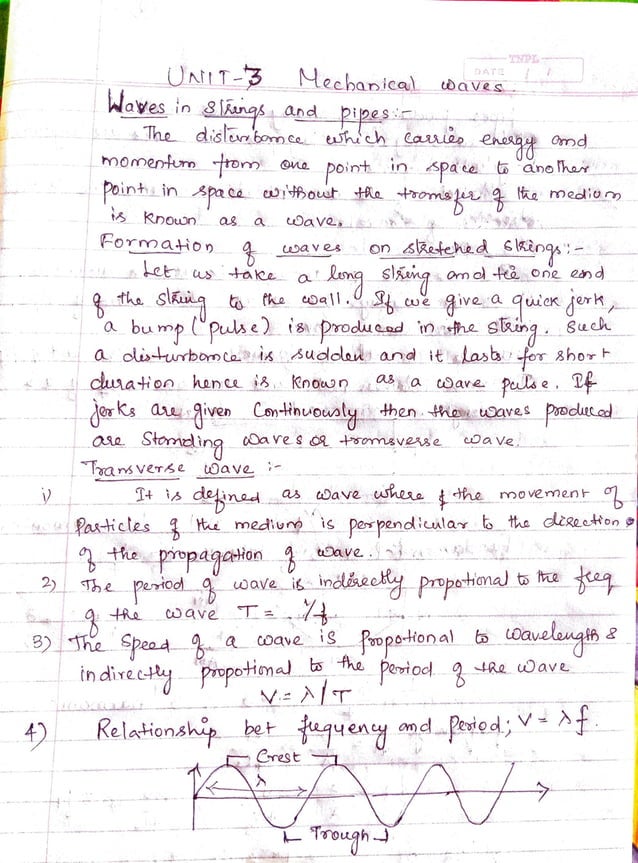 TNPL
DATE / /
UNIT-3 Mechanical waves.
Waves in strings and pipes:-
The disturbance which carries energy and
momentum from one point in space to another
point in space without the transfer of the medium
is known as a wave.
Formation of waves on stretched strings:-
Let us take a long string and tie one end
of the string to the wall. If we give a quick jerk,
a bump (pulse) is produced in the string. Such
a disturbance is sudden and it lasts for short
duration hence is known as a wave pulse. If
jerks are given continuously then the waves produced
are Standing waves or transverse wave.
Transverse wave :-
i) It is defined as wave where the movement of
Particles of the medium is perpendicular to the direction
of the propagation of wave.
2) The period of wave is indirectly propotional to the freq
of the wave T = 1/f
3) The speed of a wave is propotional to wavelength &
indirectly propotional to the period of the wave
V = λ/T
4) Relationship bet frequency and Period; V = λf.
Crest
λ
Trough